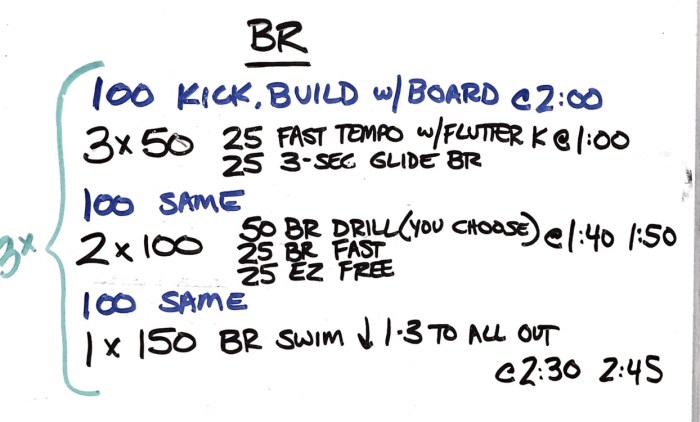 BR
100 KICK, BUILD w/BOARD @2:00
3x50 25 FAST TEMPO w/FLUTTER K @1:00
25 3-SEC GLIDE BR
100 SAME
3x 2x100 50 BR DRILL (YOU CHOOSE) @1:40 1:50
25 BR FAST
25 EZ FREE
100 SAME
1x150 BR SWIM ↓ 1-3 TO ALL OUT
@2:30 2:45